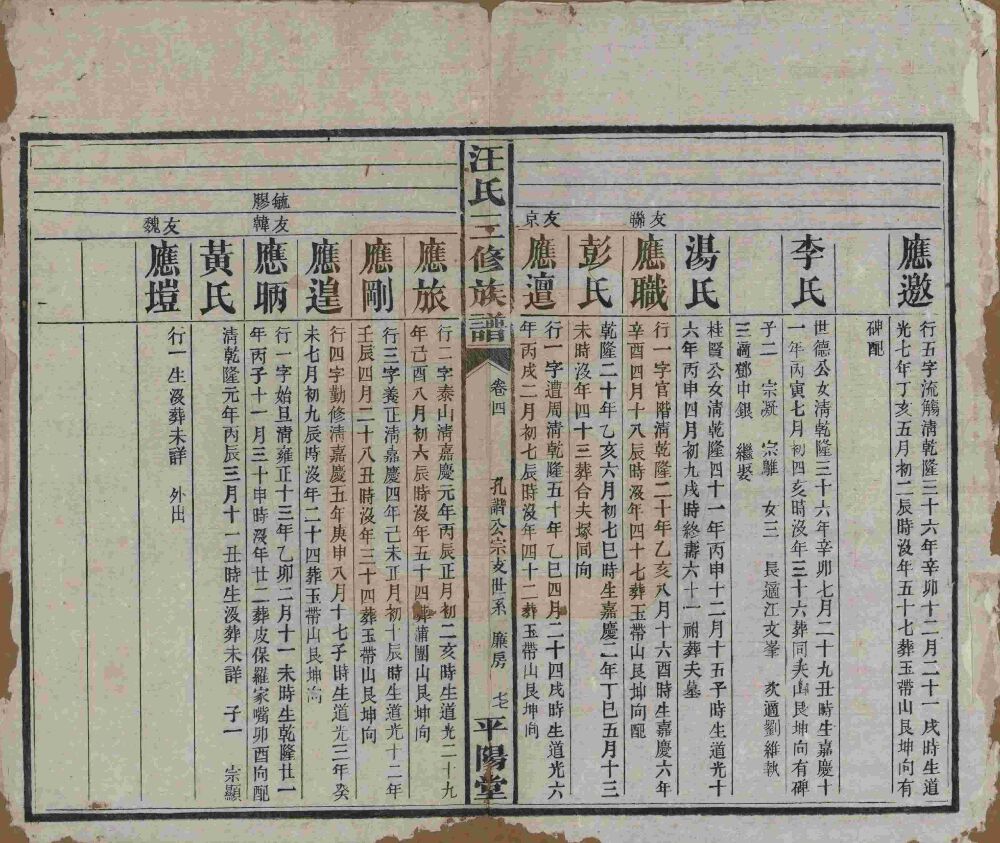 應邀
行五字流觴清乾隆三十六年辛卯十二月二十一戌時生道
光七年丁亥五月初二辰時沒年五十七葬玉帶山艮坤向有
碑配
李氏
世德公女清乾隆三十六年辛卯七月二十九丑時生嘉慶十
一年丙寅七月初四亥時沒年三十六葬同夫山艮坤向有碑
子二 宗凝 宗雖 女三 長適江文峯 次適劉維執
三適鄧中銀 繼娶
湯氏
桂賢公女清乾隆四十一年丙申十二月十五子時生道光十
六年丙申四月初九戌時終壽六十一祔葬夫墓
友聯
應職
行一字官階清乾隆二十年乙亥八月十六酉時生嘉慶六年
辛酉四月十八辰時沒年四十七葬玉帶山艮坤向配
彭氏
乾隆二十年乙亥六月初七巳時生嘉慶二年丁巳五月十三
未時沒年四十三葬合夫塚同向
友京
應邅
行一字遭周清乾隆五十年乙巳四月二十四戌時生道光六
年丙戌二月初七辰時沒年四十二葬玉帶山艮坤向
汪氏三修族譜
卷四
孔諧公宗支世系 廉房 七
平陽堂
應旅
行二字泰山清嘉慶元年丙辰正月初二亥時生道光二十九
年己酉八月初六辰時沒年五十四葬蒲團山艮坤向
應剛
行三字養正清嘉慶四年己未正月初十辰時生道光十二年
壬辰四月二十八丑時沒年三十四葬玉帶山艮坤向
應遑
行四字勤修清嘉慶五年庚申八月十七子時生道光三年癸
未七月初九辰時沒年二十四葬玉帶山艮坤向
毓膠
友韓
應昞
行一字始旦清雍正十三年乙卯二月十一未時生乾隆廿一
年丙子十一月三十申時沒年廿二葬皮保羅家嘴卯酉向配
黃氏
清乾隆元年丙辰三月十一丑時生沒葬未詳 子一 宗顯
友魏
應塏
行一生沒葬未詳 外出